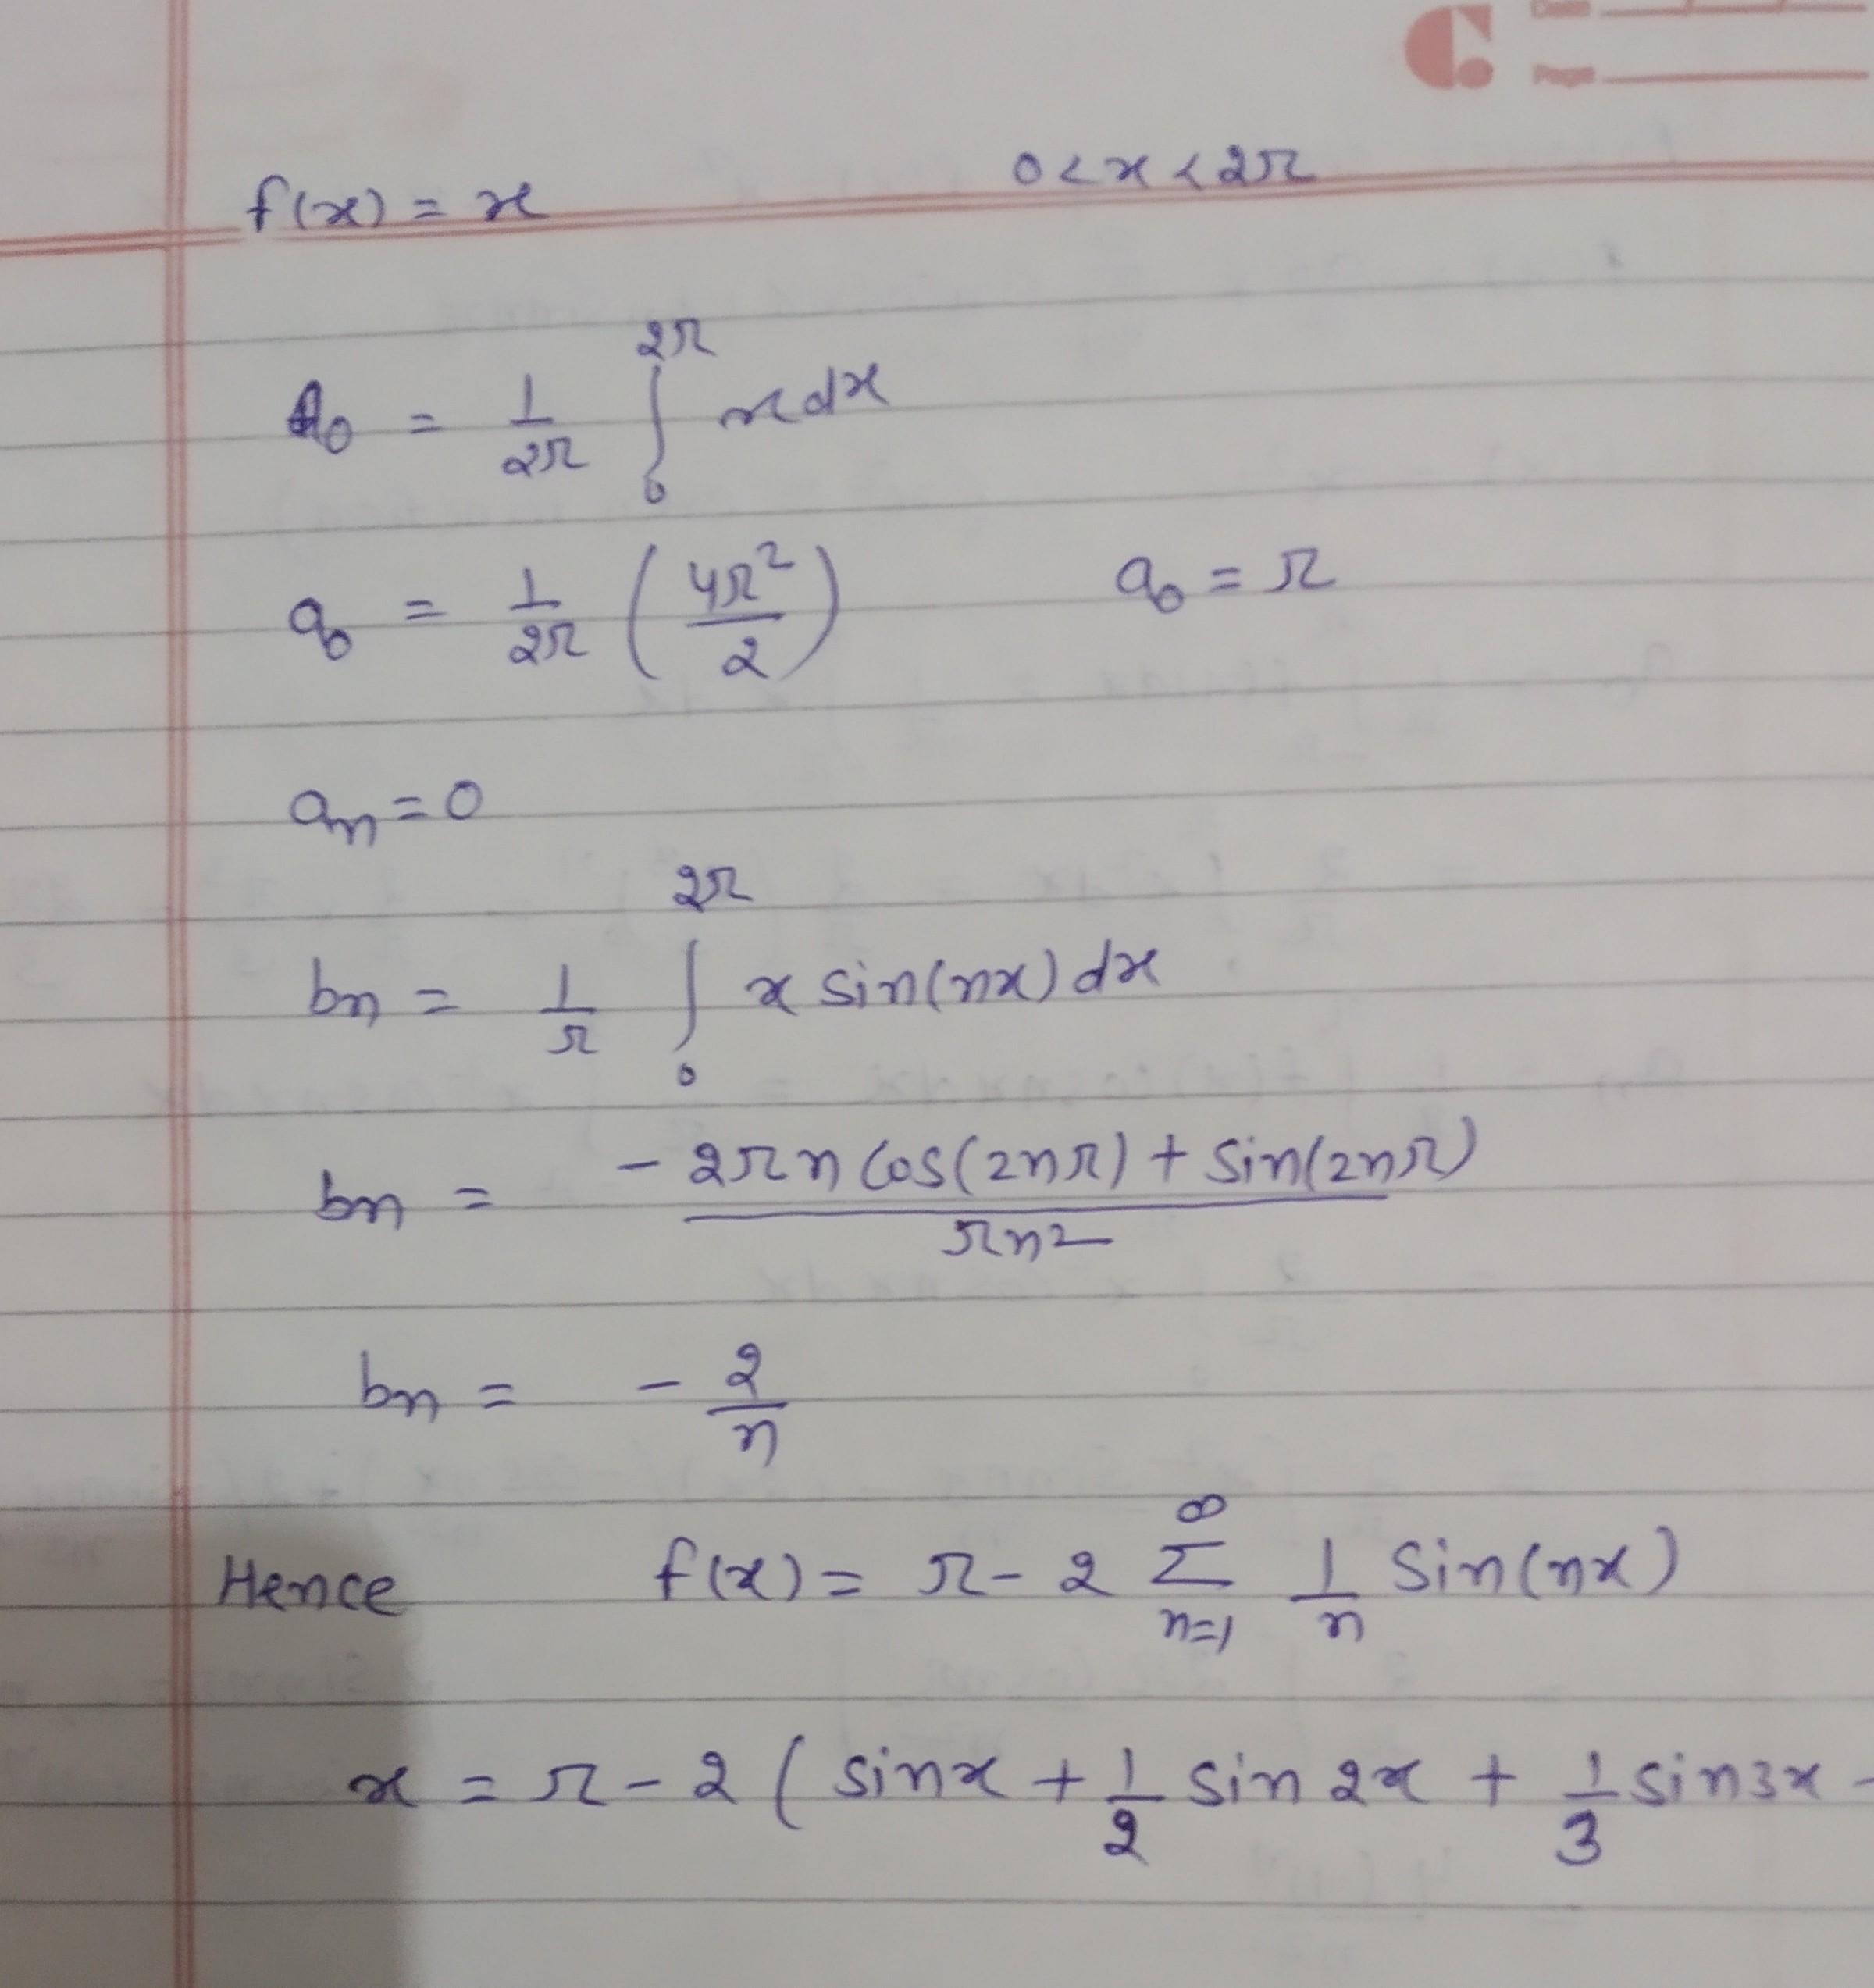 Date
Page
f(x) = x 0 < x < 2π
a₀ = 1/2π ∫₀^2π x dx
a₀ = 1/2π (4π²/2) a₀ = π
aₙ = 0
bₙ = 1/π ∫₀^2π x sin(nx) dx
bₙ = - 2πn Cos(2nπ) + Sin(2nπ) / πn²
bₙ = - 2/n
Hence f(x) = π - 2 Σ_{n=1}^∞ 1/n Sin(nx)
x = π - 2 ( sinx + 1/2 sin 2x + 1/3 sin3x -